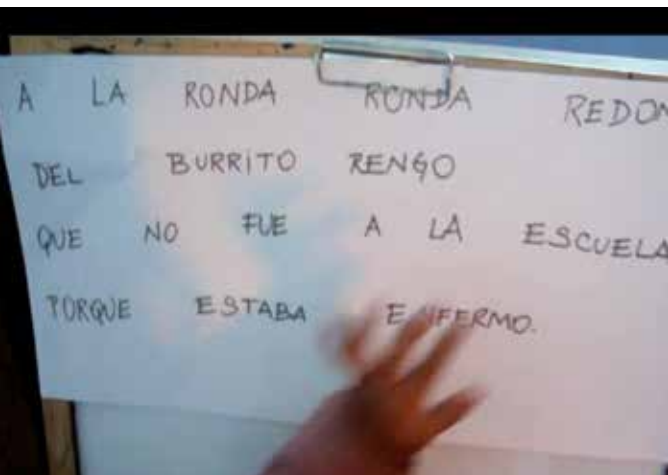 A LA RONDA RONDA REDON
DEL BURRITO RENGO
QUE NO FUE A LA ESCUELA
PORQUE ESTABA ENFERMO.